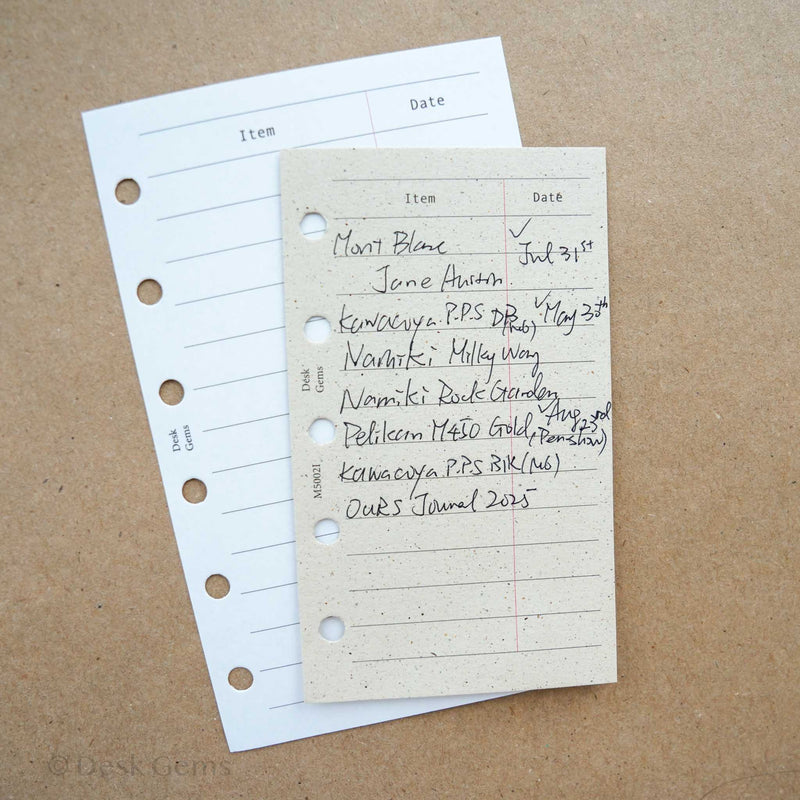 Item Date
Desk
Gems
Item Date
Mont Blanc ✓ Jul 31st
Jane Austen
Kawacuya P.P.S DB (M6) ✓ May 30th
Namiki Milky Way
Namiki Rock Garden
Pelikan M450 Gold ✓ Aug 23rd
(Penshow)
Kawacuya P.P.S Blk (M6)
OURS Journal 2025
Desk
Gems
M50021
© Desk Gems